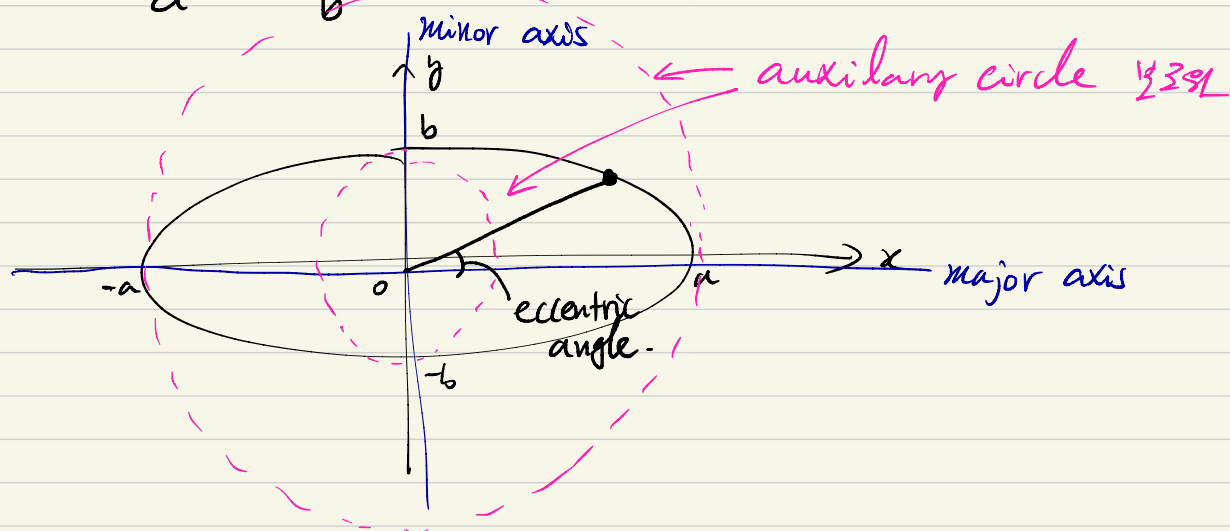 a b
minor axis
y
auxilary circle 보조원
b
x
-a
o
a
major axis
eccentric
angle.
-b